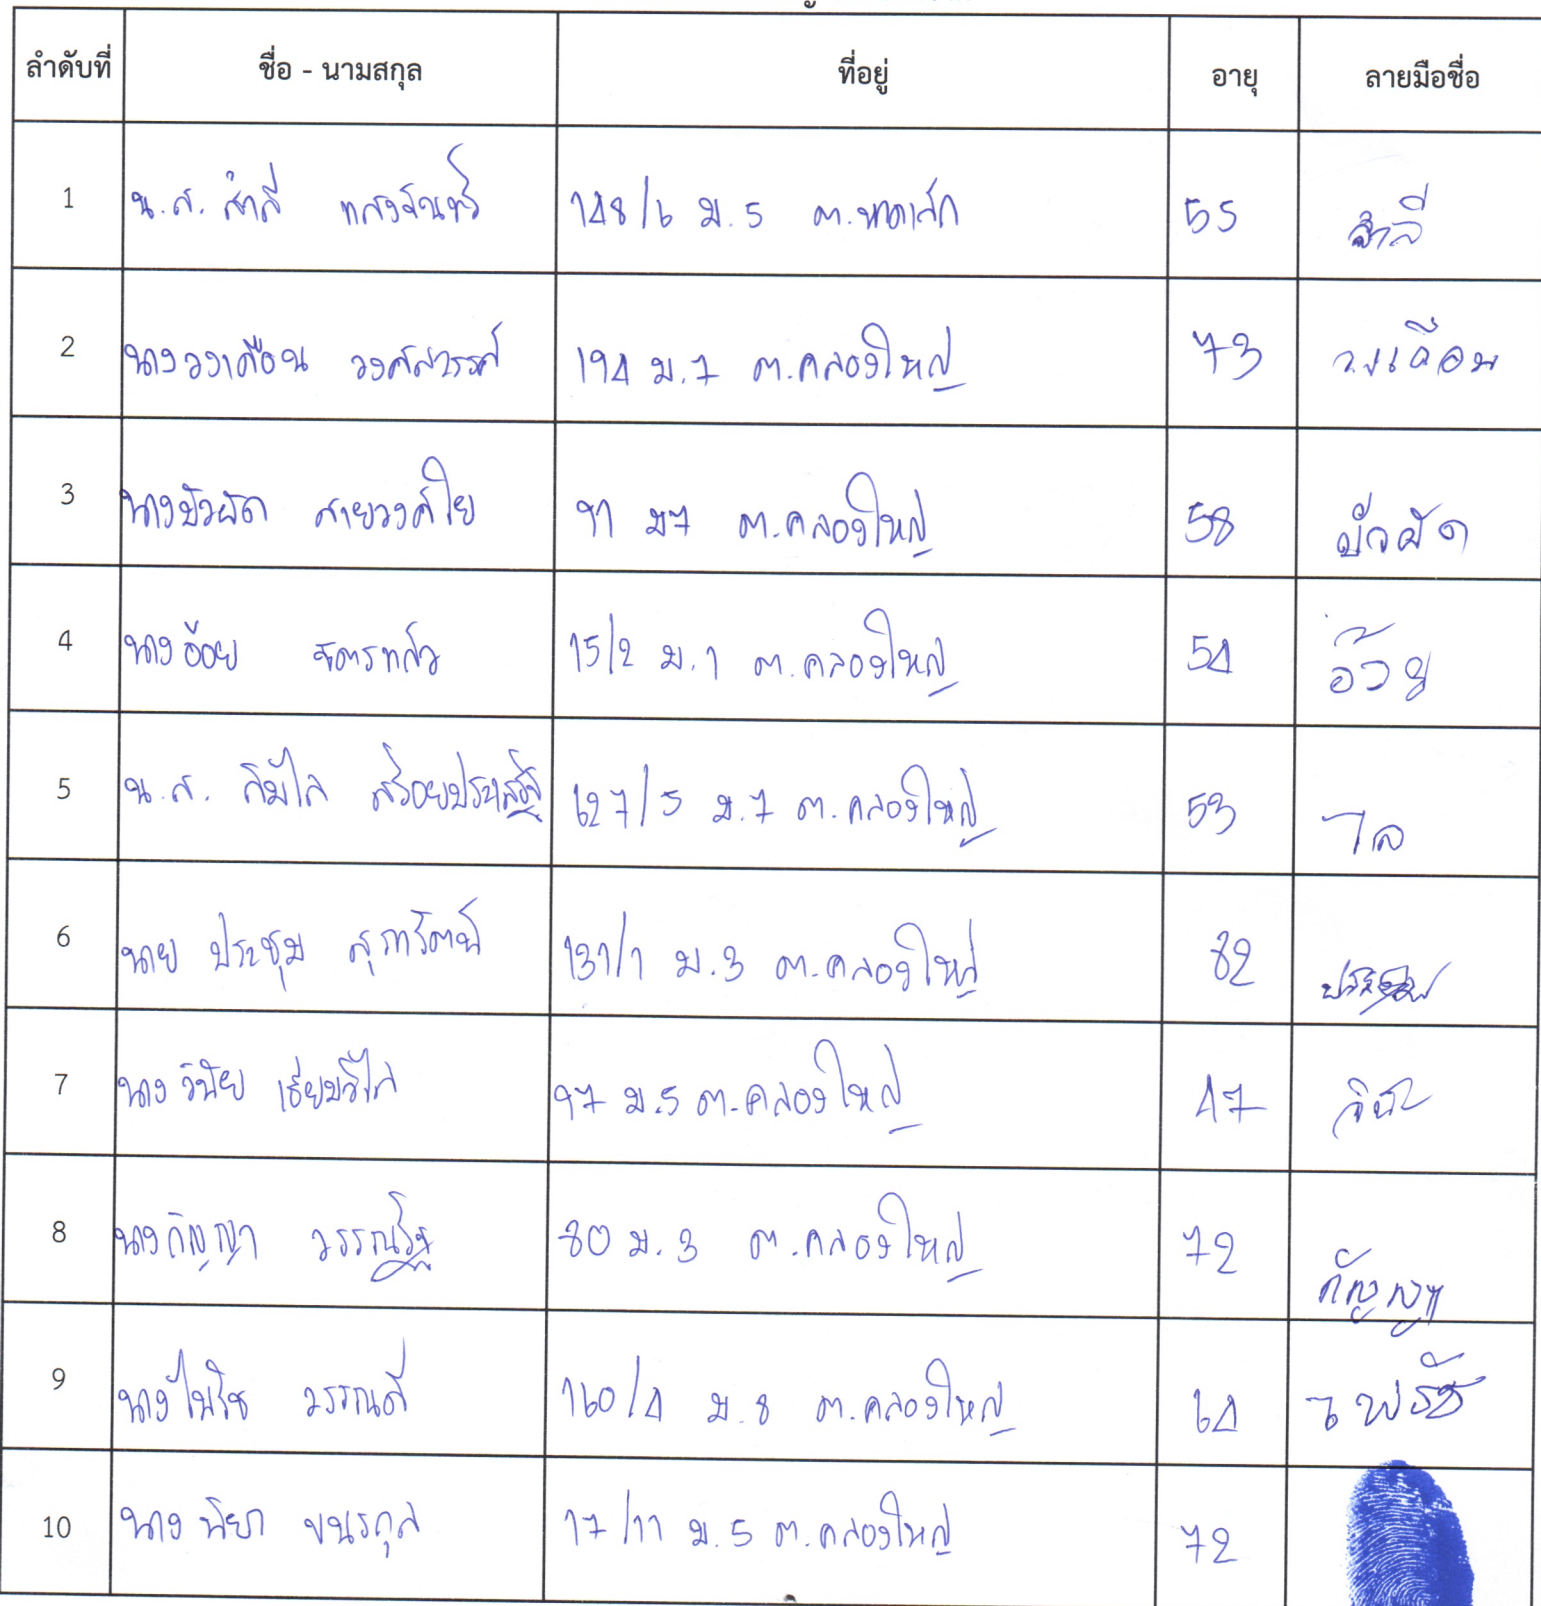 ลำดับที่ ชื่อ - นามสกุล ที่อยู่ อายุ ลายมือชื่อ
1 น.ส. สำลี แสงจันทร์ 148/6 ม.5 ต.หาดเล็ก 55 สำลี
2 นางวงเดือน วงศ์สวรรค์ 194 ม.7 ต.คลองใหญ่ 73 วงเดือน
3 นางบัวผัด สายวงค์ใย 91 ม7 ต.คลองใหญ่ 58 บัวผัด
4 นางอ้อย ฉัตรแก้ว 15/2 ม.1 ต.คลองใหญ่ 54 อ้วย
5 น.ส. สร้อยประเสริฐ 627/5 ม.7 ต.คลองใหญ่ 53 ไล
6 นาย ประชุม สุภารัตน์ 131/1 ม.3 ต.คลองใหญ่ 82
7 นาง วินัย 97 ม.5 ต.คลองใหญ่ 47
8 นางกัญญา 80 ม.3 ต.คลองใหญ่ 72 กัญญา
9 นาง วรรณดี 160/4 ม.8 ต.คลองใหญ่ 64
10 นาง 17/11 ม.5 ต.คลองใหญ่ 72